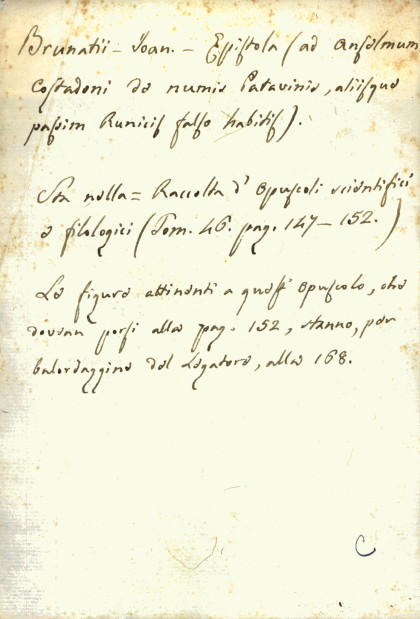 Brunatii - Joan. - Epistola (ad Anselmum
Costadoni de numis Patavinis, aliisque
passim Runicis falso habitis).
Sta nella = Raccolta d'Opuscoli scientifici
e filologici (Tom. 46. pag. 147 - 152.)
Le figure attinenti a quest'opuscolo, che
dovean porsi alla pag. 152, stanno, per
balordaggine del Legatore, alla 168.
C